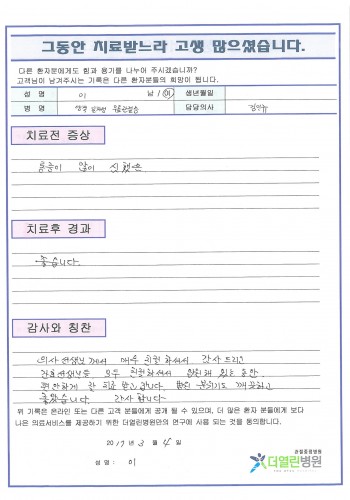 그동안 치료받느라 고생 많으셨습니다.
다른 환자분에게도 힘과 용기를 나누어 주시겠습니까?
고객님이 남겨주시는 기록은 다른 환자분들의 희망이 됩니다.
성 명 이 남 / 여 생년월일
병 명 담당의사
치료전 증상
통증이 많이 심했음
치료후 경과
좋습니다.
감사와 칭찬
의사 선생님께서 매우 친절하셔서 감사드리고
간호선생님들 모두 친절하셔서 입원해 있는 동안
편안하게 잘 치료 받고 갑니다. 병원 분위기도 깨끗하고
좋았습니다. 감사합니다.
위 기록은 온라인 또는 다른 고객 분들에게 공개 될 수 있으며, 더 많은 환자 분들에게 보다
나은 의료서비스를 제공하기 위한 더열린병원만의 연구에 사용 되는 것을 동의합니다.
2019 년 3 월 4 일
성 명 : 이
관절중점병원
더열린병원